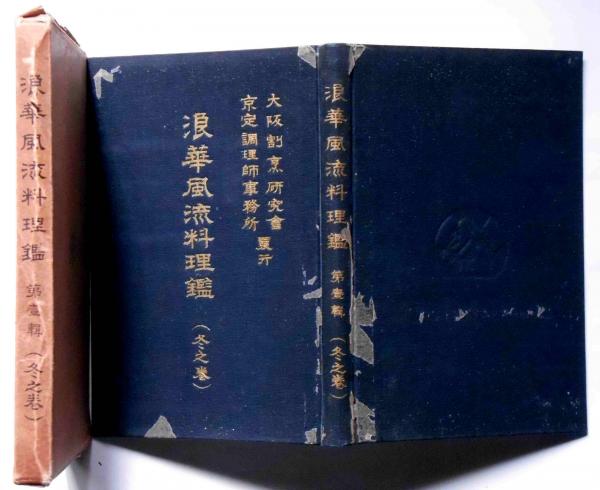 浪華風流料理鑑 第壹輯 (冬之卷)
大阪割烹研究會
京定調理師事務所
發行
浪華風流料理鑑 (冬之卷)
浪華風流料理鑑 第壹輯 (冬之卷)